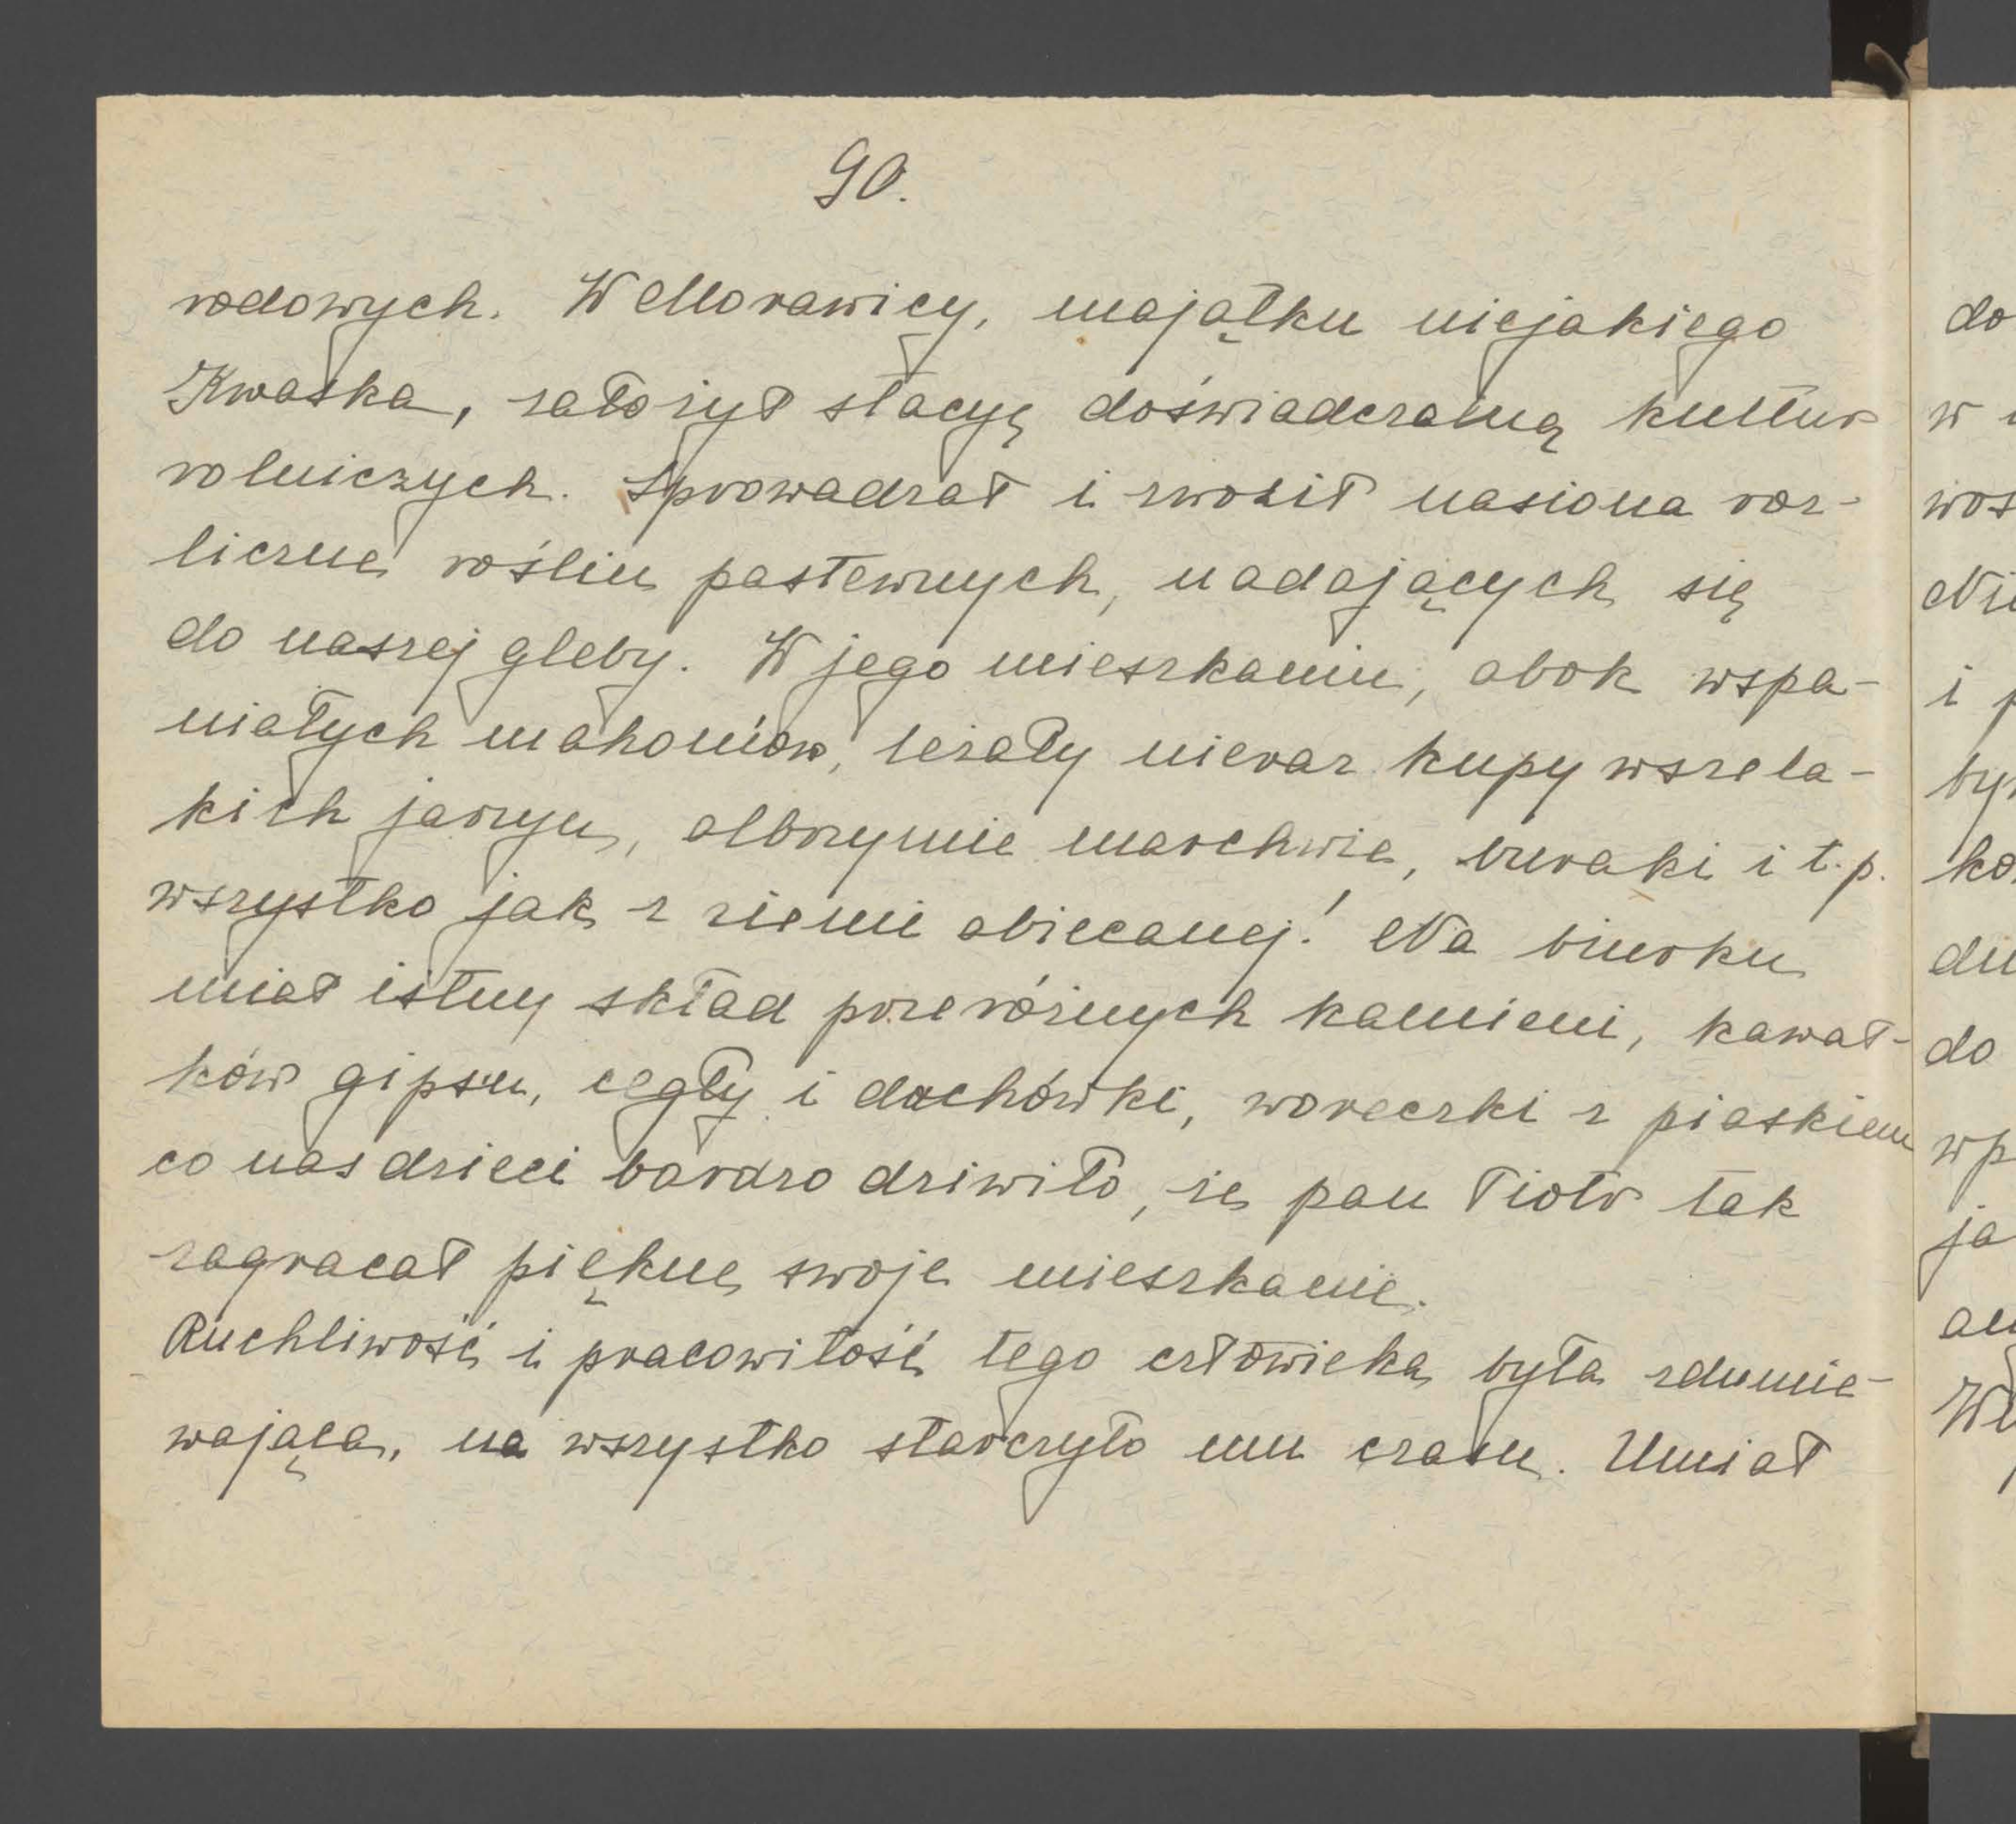 90.
rodowych. W Morawicy, majątku niejakiego
Kwaska, założył stacyę doświadczalną kultur
rolniczych. Sprowadzał i zwoził nasiona roz-
liczne roślin pastewnych, nadających się
do naszej gleby. W jego mieszkaniu, obok wspa-
niałych mahoniów, leżały nieraz kupy wszela-
kich jarzyn, olbrzymie marchwie, buraki i t.p.
wszystko jak z ziemi obiecanej! Na biurku
miał istny skład przeróżnych kamieni, kawał-
ków gipsu, cegły i dachówki, woreczki z piaskiem
co nas dzieci bardzo dziwiło, że pan Piotr tak
zagracał piękne swoje mieszkanie.
Ruchliwość i pracowitość tego człowieka była zdumie-
wająca, na wszystko starczyło mu czasu. Umiał